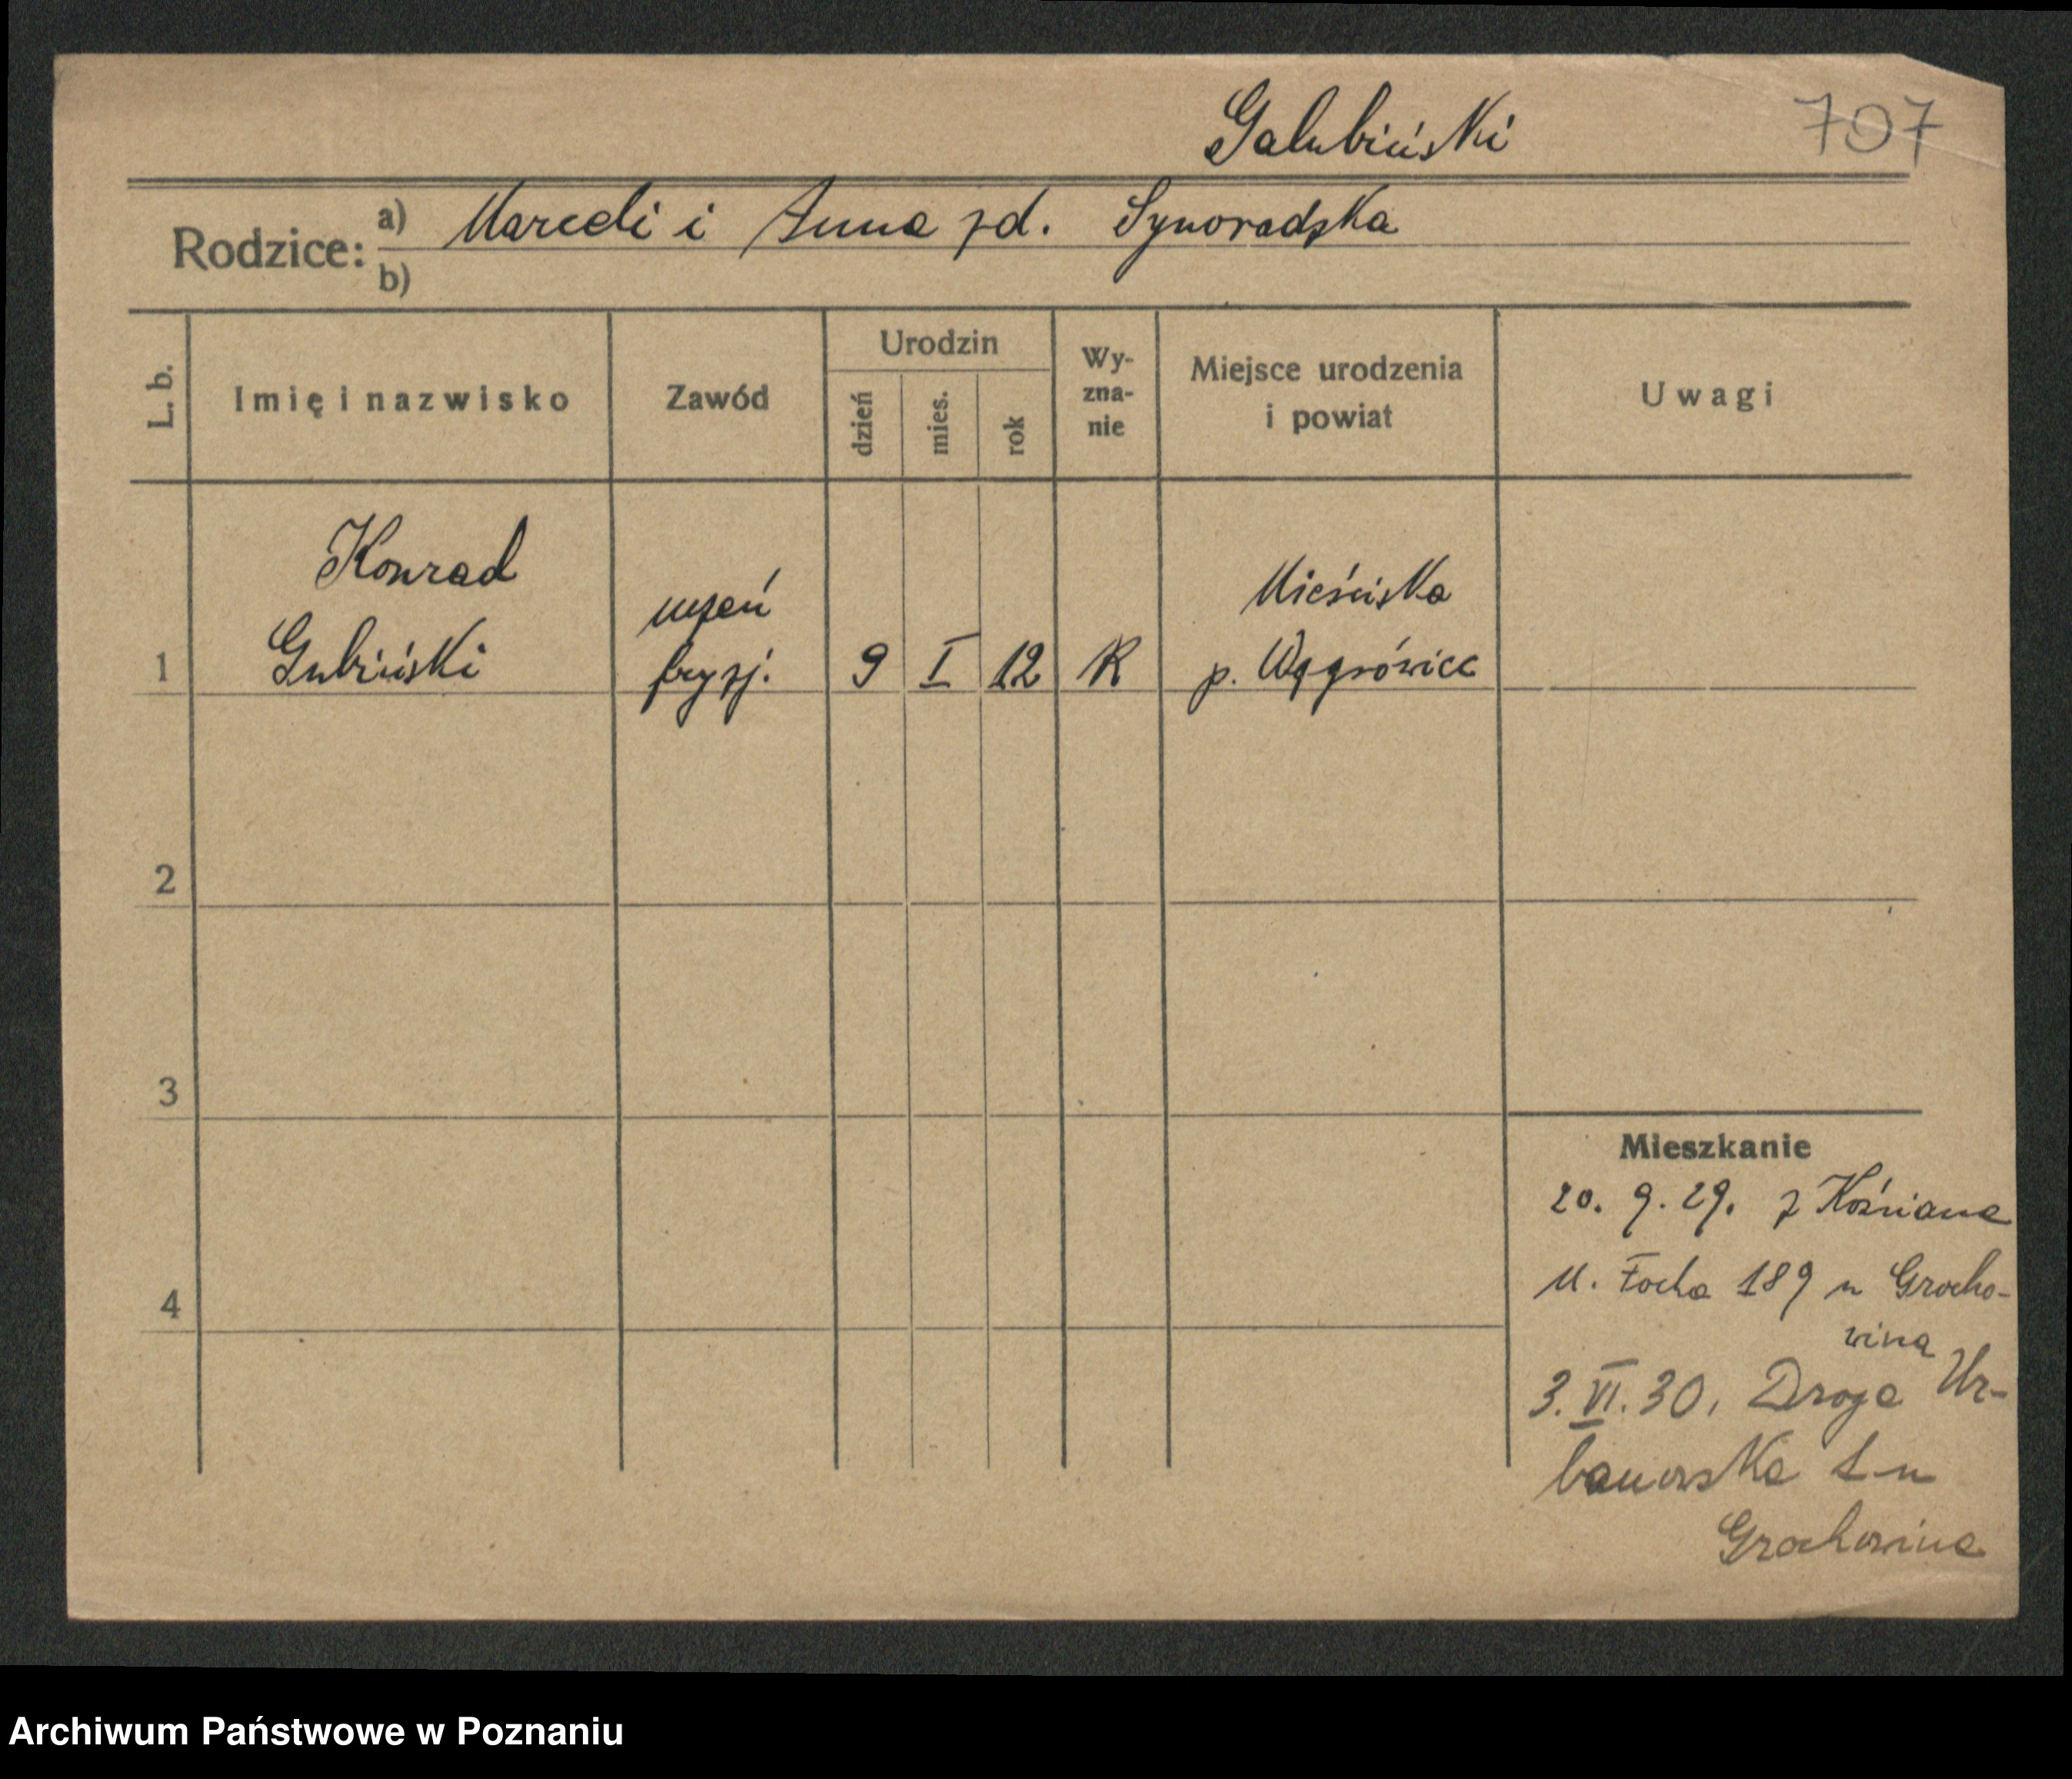 Galubiński 707
Rodzice: a) Marceli i Anna zd. Synoradzka
b)
L. b. Imię i nazwisko Zawód Urodzin dzień mies. rok Wy-zna-nie Miejsce urodzenia i powiat Uwagi
Konrad
uczeń Mieściska
1 Gubiński fryzj. 9 I 12 R p. Wągrówiec
2
3
Mieszkanie
20. 9. 29. z Koźniana
4 M. Focha 189 u Grocho-
wina
3. VI. 30. Droga Ur-
banowska 1 u
Grochowina
Archiwum Państwowe w Poznaniu